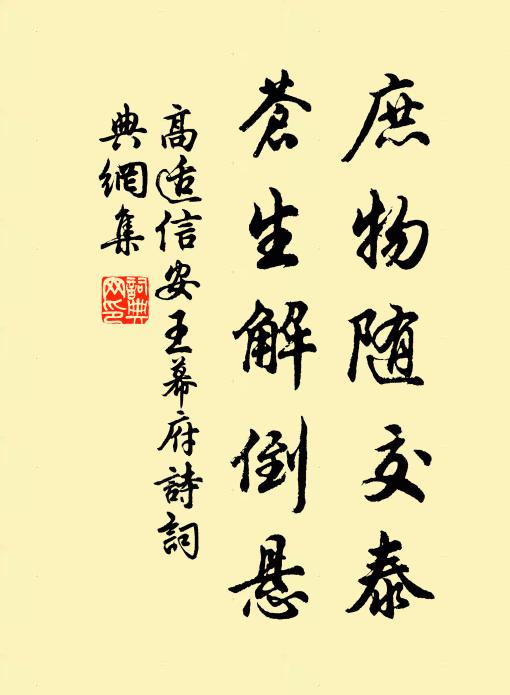 庶物随交泰
蒼生解倒悬
高适信安王幕府詩詞
典網集
詞典
网印